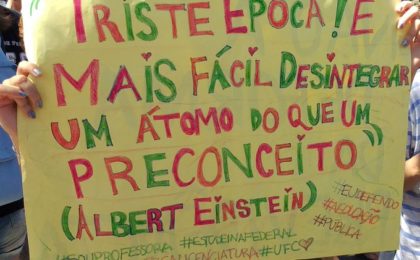 TRISTE EPOCA! É
MAIS FÁCIL DESINTEGRAR
UM ÁTOMO DO QUE UM
PRECONCEITO”
(ALBERT EINSTEIN)
#EUDEFENDO
#EDUCAÇÃO
#PÚBLICA
#SOUPROFESSORA #ESTUDEINAFEDERAL
LICENCIATURA #UFC